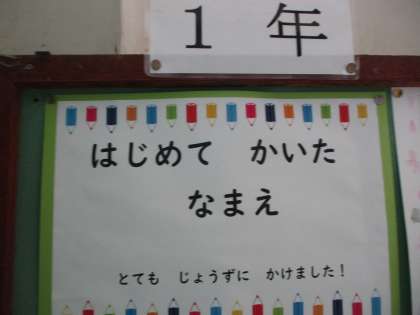 1 年
はじめて かいた
なまえ
とても じょうずに かけました!